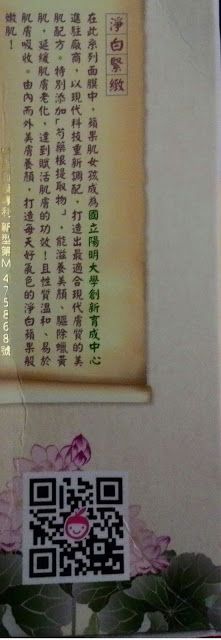 淨白緊緻
在此系列面膜中，蘋果肌女孩成為國立陽明大學創新育成中心
進駐廠商，以現代科技重新調配，打造出最適合現代膚質的美
肌配方。特別添加「芍藥根提取物」，能滋養美顏、驅除蠟黃
肌，延緩肌膚老化，達到賦活肌膚的功效！且性質溫和、易於
肌膚吸收。由內而外美膚養顏，打造每天好氣色的淨白蘋果般
嫩肌！
新型第M 475868號